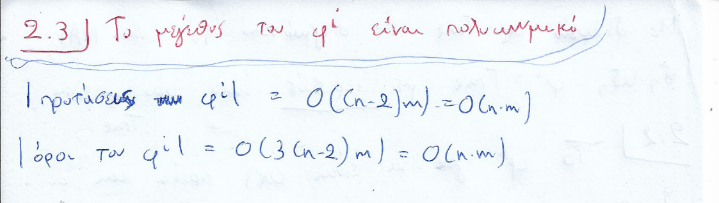 2.3) Το μέγεθος του φⁱ είναι πολυωνυμικό
|προτάσεις φⁱ| = O((n-2)m) = O(n·m)
|όροι του φⁱ| = O(3(n-2)m) = O(n·m)